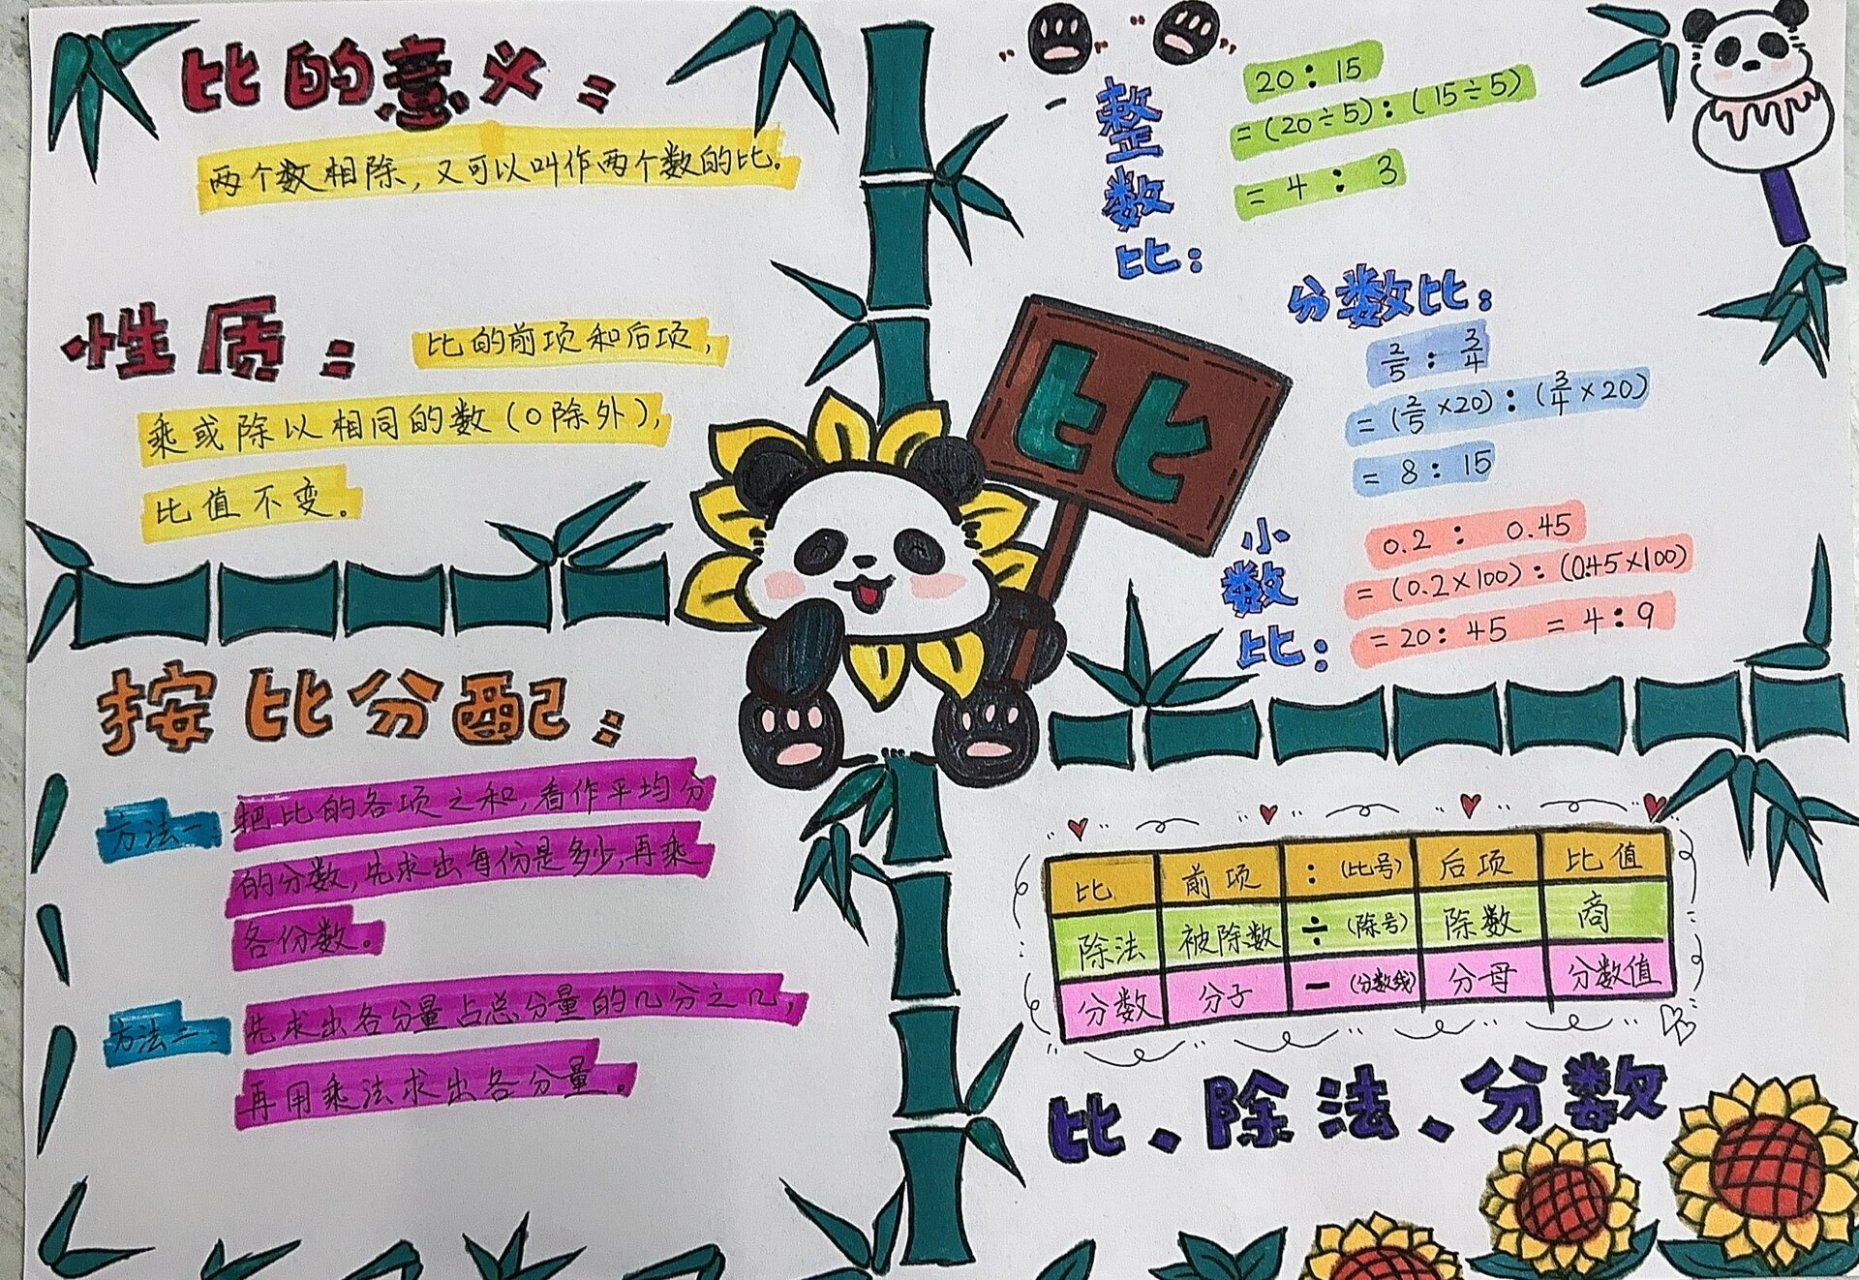 比的意义：
两个数相除，又可以叫作两个数的比。
性质：
比的前项和后项，
乘或除以相同的数（0除外），
比值不变。
按比分配：
方法一
把比的各项之和，看作平均分
的分数，先求出每份是多少，再乘
各份数。
方法二：
先求出各分量占总分量的几分之几，
再用乘法求出各分量。
比
整数比：
20：15
=(20÷5)：(15÷5)
= 4：3
分数比：
2/5：3/4
=(2/5×20)：(3/4×20)
= 8：15
小数比：
0.2：0.45
=(0.2×100)：(0.45×100)
=20：45 =4：9
比 前项 ：(比号) 后项 比值
除法 被除数 ÷(除号) 除数 商
分数 分子 —(分数线) 分母 分数值
比、除法、分数